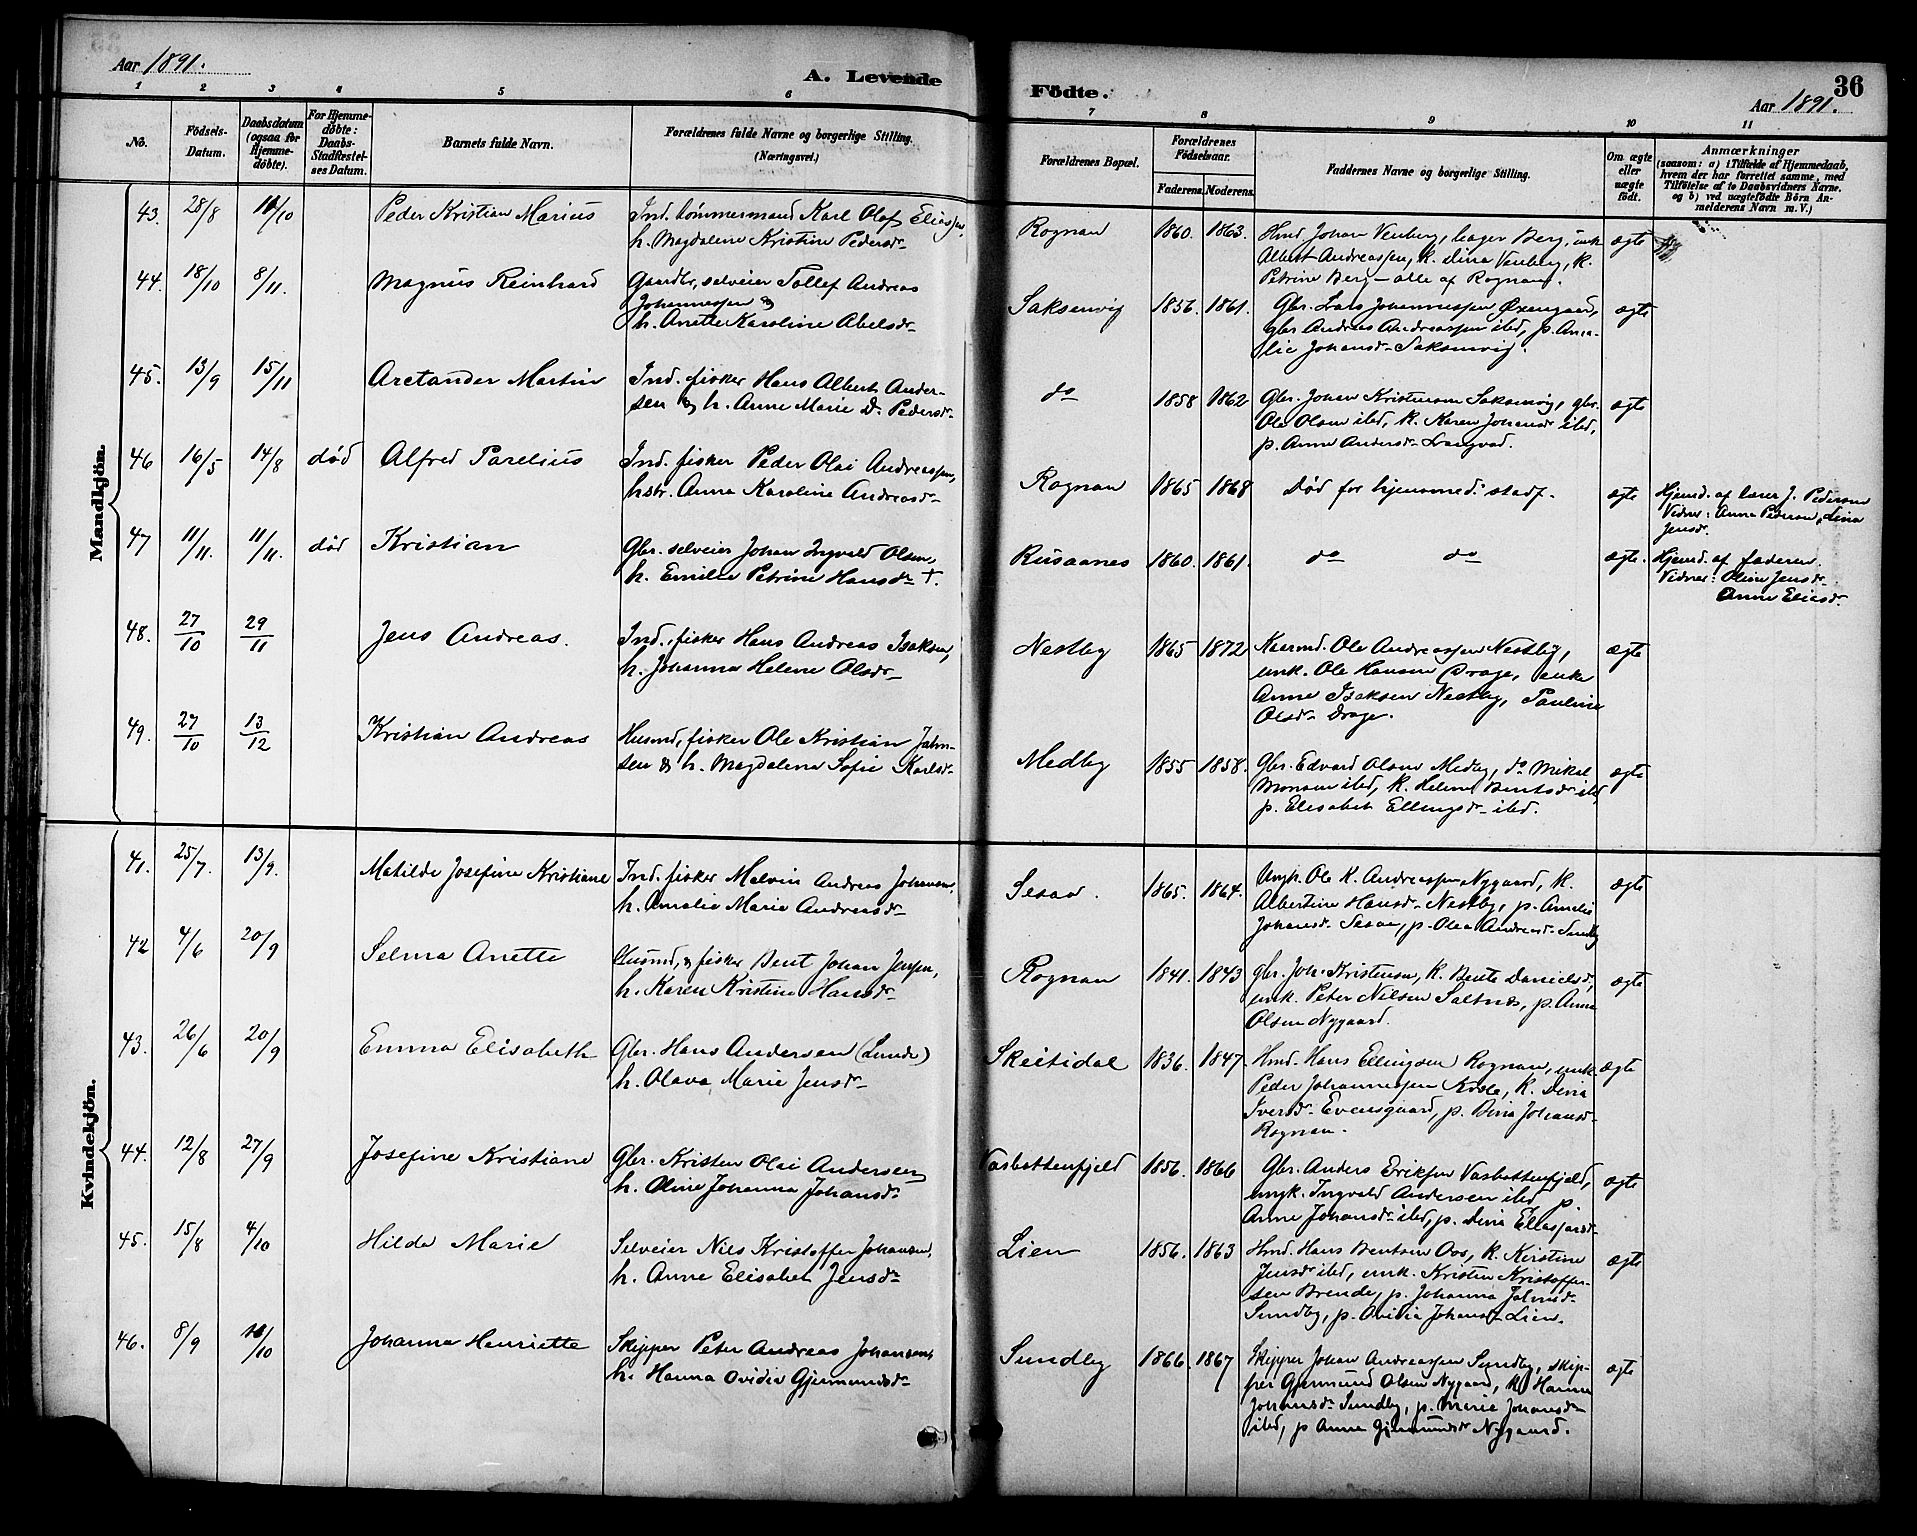 Aar 1891.
A. Levende
Födte.
36
Aar 1891.
1 2 3 4 5 6 7 8 9 10 11
No.
Födsels-
Datum.
Daabsdatum
(ogsaa for
Hjemme-
döbte).
For Hjemme-
döbte:
Daabs-
Stadfæstel-
ses Datum.
Barnets fulde Navn.
Forældrenes fulde Navne og borgerlige Stilling.
(Næringsvei.)
Forældrenes Bopæl.
Forældrenes
Födselsaar.
Faderens.
Moderens.
Faddernes Navne og borgerlige Stilling.
Om ægte
eller
uægte
födt.
Anmærkninger
(saasom: a) i Tilfælde af Hjemmedaab,
hvem der har forrettet samme, med
Tilföielse af to Daabsvidners Navne.
og b) ved uægtefödte Börn An-
melderens Navn m. V.)
Mandkjön.
43. 28/8 11/10 Peder Kristian Marius
Ind. tömmermand Karl Olaf Eliassen,
h. Magdalene Kristine Pedersdr
Rognan 1860. 1863.
Hmd. Johan Venberg, lager Berg, umk
Albert Andreassen, k. Dina Venberg, k.
Petrine Berg – alle af Rognan.
ægte
44. 18/10 8/11. Magnus Reinhard
Gaardbr, selveier Tollef Andreas
Johannessen &
h. Anette Karoline Abelsdr
Saksenvig 1856. 1861.
Gbr. Lars Johannessen Øxengaard,
gbr Andreas Andreassen ibd, p. Ama-
lie Johansdr Saksenvig.
ægte
45. 13/9 15/11 Aretander Martin
Ind. fisker Hans Albert Ander-
sen & h. Anne Marie D. Pedersdr
do 1858 1862
Gbr. Johan Kristensen Saksenvig, gbr.
Ole Olsen ibd, k. Karen Johansdr ibd,
p. Anne Andersdr Langvad.
ægte
46 16/5 14/8 död Alfred Parelius
Ind. fisker Peder Olai Andreassen,
hstr. Anna Karoline Andreasdr
Rognan 1865 1868
Död for hjemmed. stadf.
ægte
Hjemd. af lærer J. Pedersen
Vidner: Anna Pedersen, Lina
Jensdr
47 11/11. 11/11. död Kristian
Gbr. selveier Johan Ingvald Olsen,
h. Emilie Petrine Hansdr †.
Rusaanes 1860. 1861.
do do
ægte.
Hjemd. af faderen.
Vidner: Oline Jensdr
Anne Eliasdr
48. 27/10 29/11 Jens Andreas.
Ind., fisker Hans Andreas Isaksen,
h. Johanna Helene Olsdr
Nestby 1865 1872
Kaarmd. Ole Andreassen Nestby,
umk. Ole Hansen Drage, enke
Anne Isaksen Nestby, Pauline
Olsdr Drage.
ægte
49. 27/10 13/12 Kristian Andreas
Husmd, fisker Ole Kristian Jahn-
sen & h. Magdalena Sofie Karlsdr
Medby 1855 1858.
Gbr. Edvard Olsen Medby, do Mikal
Monsen ibd, k. Helene Bentsdr ibd,
p. Elisabet Ellingsdr ibd.
ægte
Kvindekjön.
41. 25/7. 13/9. Matilde Josefine Kristiane
Ind. fisker Malvin Andreas Johansen,
h. Amalie Marie Andreasdr
Sesaa. 1865. 1864.
Ungk. Ole K. Andreassen Nygaard, k.
Albertine Hansdr Nestby, p. Amelie
Johansdr Sesaa, p. Olea Andreasdr Sundby
ægte
42 4/6 20/9 Selma Anette
Husmd, & fisker Bent Johan Jensen,
h. Karen Kristine Hansdr
Rognan 1841. 1843
gbr. Joh. Kristensen, k. Bente Danielsdr,
umk. Peter Nilsen Saltnes, p. Anna
Olsen Nygaard.
ægte
43. 26/6 20/9 Emma Elisabeth
Gbr. Hans Andersen (Lunde)
h. Olava Marie Jensdr
Skeitidal 1836. 1847.
Hmd. Hans Ellingsen Rognan, umk
Peder Johannessen Kvæle, k. Dina
Iversdr Evensgaard, p. Dina Johansdr
Rognan.
ægte
44. 12/8 27/9 Josefine Kristiane
Gbr. Kristen Olai Andersen
h. Oline Johanna Johansdr
Vasbottenfjeld 1856. 1866
Gbr. Anders Eriksen Vasbottenfjeld,
ungk. Ingvald Andersen ibd, p.
Anne Johansdr ibd, p. Dina
ægte
45. 15/8 4/10 Hilda Marie
Selveier Nils Kristoffer Johansen,
h. Anne Elisabet Jensdr
Lien 1856. 1863
Hmd. Hans Bentsen Oos, k. Kirstine
Jensdr ibd, umk. Kristen Kristoffer-
sen Brende, p. Johanna Jahnsdr
Sundby, p. Ovidia Johansdr Lien.
ægte
46. 8/9 11/10 Johanna Henriette
Skipper Peter Andreas Johansen,
h. Hanna Ovidia Gjermundsdr
Sundby 1866 1867
Skipper Johan Andreassen Sundby, skip-
per Gjermund Olsen Nygaard, k. Hanna
Johansdr Sundby, p. Marie Johansdr
ibd, p Anna Gjermundsdr Nygaard.
ægte